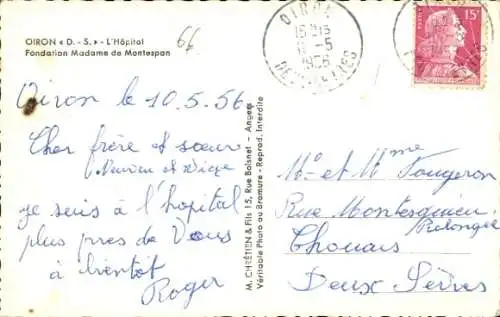 OIRON « D. - S. » - L'Hôpital
Fondation Madame de Montespan
66
OIRON
DEUX-SEVRES
15F
Oiron le 10.5.56
Cher frère et soeur
Neveu et Nièce
je suis à l'hopital
plus pres de Vous
à bientôt
Roger
M. CHRÉTIEN & Fils 15, Rue Boisnet - Angers
Véritable Photo au Bromure - Reprod. Interdite
Mr et Mme Fougeron
Rue Montesquieu
Prolongée
Thouars
Deux Sèvres